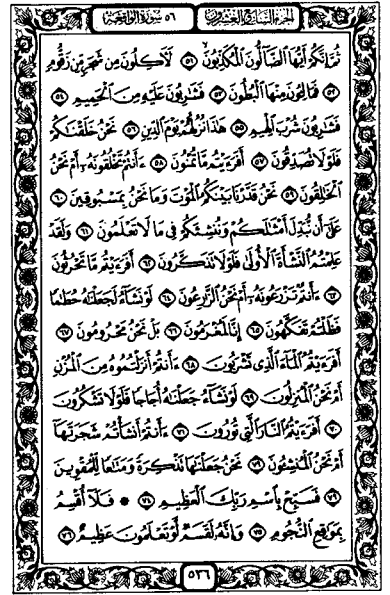 الجزء السابع والعشرون ٥٦ سورة الواقعة
ثُمَّ إِنَّكُمْ أَيُّهَا الضَّآلُّونَ الْمُكَذِّبُونَ ٥١ لَأٓكِلُونَ مِن شَجَرٍ مِّن زَقُّومٍ
٥٢ فَمَالِـُٔونَ مِنْهَا الْبُطُونَ ٥٣ فَشَٰرِبُونَ عَلَيْهِ مِنَ الْحَمِيمِ ٥٤
فَشَٰرِبُونَ شُرْبَ الْهِيمِ ٥٥ هَٰذَا نُزُلُهُمْ يَوْمَ الدِّينِ ٥٦ نَحْنُ خَلَقْنَٰكُمْ
فَلَوْلَا تُصَدِّقُونَ ٥٧ أَفَرَءَيْتُم مَّا تُمْنُونَ ٥٨ ءَأَنتُمْ تَخْلُقُونَهُۥٓ أَمْ نَحْنُ
الْخَٰلِقُونَ ٥٩ نَحْنُ قَدَّرْنَا بَيْنَكُمُ الْمَوْتَ وَمَا نَحْنُ بِمَسْبُوقِينَ ٦٠
عَلَىٰٓ أَن نُّبَدِّلَ أَمْثَٰلَكُمْ وَنُنشِئَكُمْ فِي مَا لَا تَعْلَمُونَ ٦١ وَلَقَدْ
عَلِمْتُمُ النَّشْأَةَ الْأُولَىٰ فَلَوْلَا تَذَكَّرُونَ ٦٢ أَفَرَءَيْتُم مَّا تَحْرُثُونَ
٦٣ ءَأَنتُمْ تَزْرَعُونَهُۥٓ أَمْ نَحْنُ الزَّٰرِعُونَ ٦٤ لَوْ نَشَآءُ لَجَعَلْنَٰهُ حُطَٰمًا
فَظَلْتُمْ تَفَكَّهُونَ ٦٥ إِنَّا لَمُغْرَمُونَ ٦٦ بَلْ نَحْنُ مَحْرُومُونَ ٦٧
أَفَرَءَيْتُمُ الْمَآءَ الَّذِي تَشْرَبُونَ ٦٨ ءَأَنتُمْ أَنزَلْتُمُوهُ مِنَ الْمُزْنِ
أَمْ نَحْنُ الْمُنزِلُونَ ٦٩ لَوْ نَشَآءُ جَعَلْنَٰهُ أُجَاجًا فَلَوْلَا تَشْكُرُونَ
٧٠ أَفَرَءَيْتُمُ النَّارَ الَّتِي تُورُونَ ٧١ ءَأَنتُمْ أَنشَأْتُمْ شَجَرَتَهَآ
أَمْ نَحْنُ الْمُنشِـُٔونَ ٧٢ نَحْنُ جَعَلْنَٰهَا تَذْكِرَةً وَمَتَٰعًا لِّلْمُقْوِينَ
٧٣ فَسَبِّحْ بِاسْمِ رَبِّكَ الْعَظِيمِ ٧٤ ۞ فَلَآ أُقْسِمُ
بِمَوَٰقِعِ النُّجُومِ ٧٥ وَإِنَّهُۥ لَقَسَمٌ لَّوْ تَعْلَمُونَ عَظِيمٌ ٧٦
٥٣٦